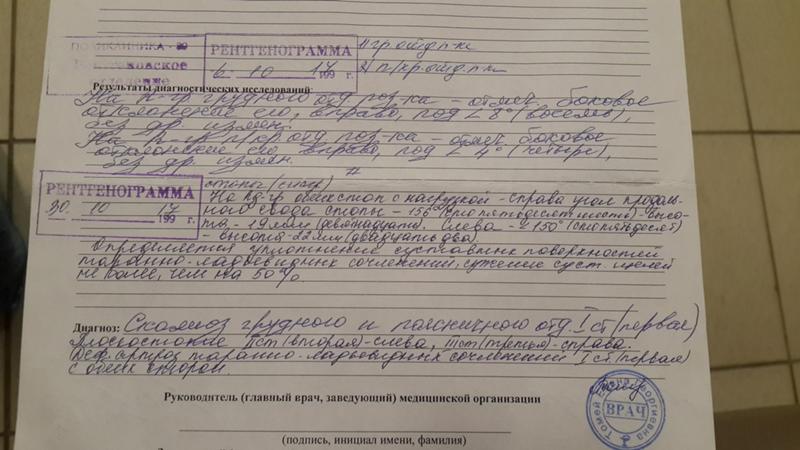 ПОЛИКЛИНИКА
отделение
РЕНТГЕНОГРАММА
6 10 17 199 г.
1) гр. отд. п-ка
2) п/кр. отд. п-ка
Результаты диагностических исследований:
На р-гр грудного отд. поз-ка - отмеч. боковое
отклонение его, вправо, под ∠ 8° (восемь),
без др. измен.
На р-гр отд поз-ка - отмеч. боковое
отклонение его вправо, под ∠ 4° (четыре),
без др. измен.
РЕНТГЕНОГРАММА
30. 10 17 199 г.
стопы
На обеих стоп с нагрузкой - справа угол продоль-
ного свода стопы - 156° (сто пятьдесят шесть) - высо-
та - 19 мм (девятнадцать). Слева - ∠ 150° (сто пятьдесят)
- высота - 22 мм (двадцать два).
Определяется уплотнение суставных поверхностей
таранно-ладьевидных сочленений, сужение суст. щелей
не более, чем на 50%.
Диагноз: Сколиоз грудного и поясничного отд. I ст (первая)
Плоскостопие II ст (вторая) - слева, III ст (третья) - справа.
Деф. артроз таранно-ладьевидных сочленений I ст. (первая)
с обеих сторон.
Руководитель (главный врач, заведующий) медицинской организации
(подпись, инициал имени, фамилия)
ВРАЧ
Георгиевна